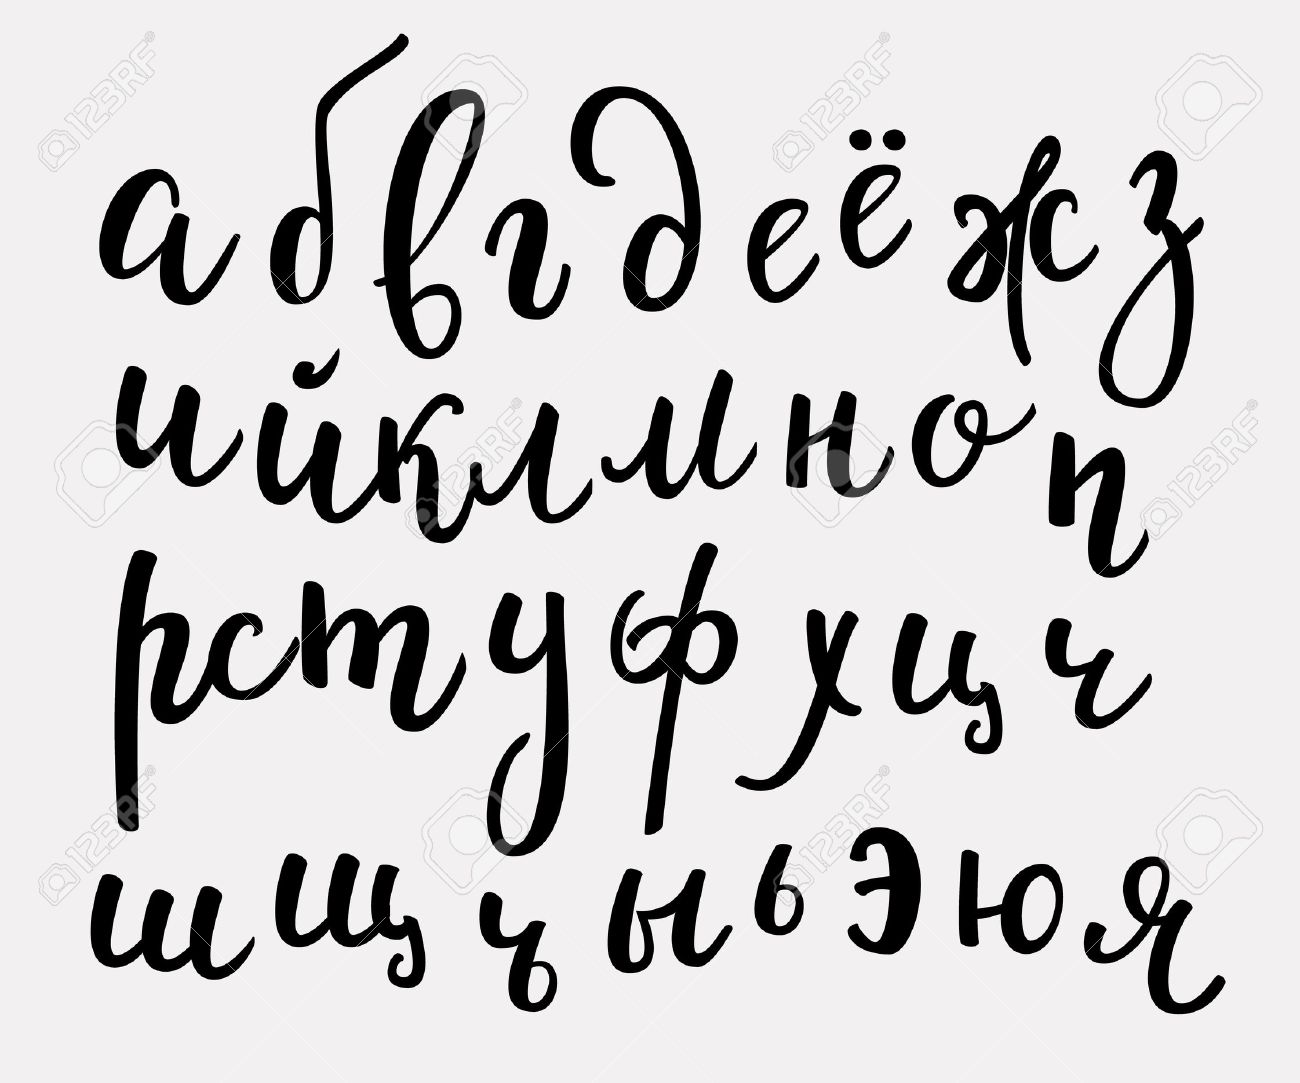 абвгдеёжз
ийклмноп
рстуфхцч
шщъыьэюя